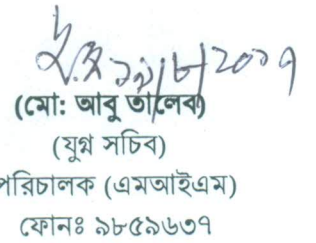 ১৯/৮/২০১৭
(মো: আবু তালেব)
(যুগ্ম সচিব)
পরিচালক (এমআইএম)
ফোনঃ ৯৮৫৯৬৩৭